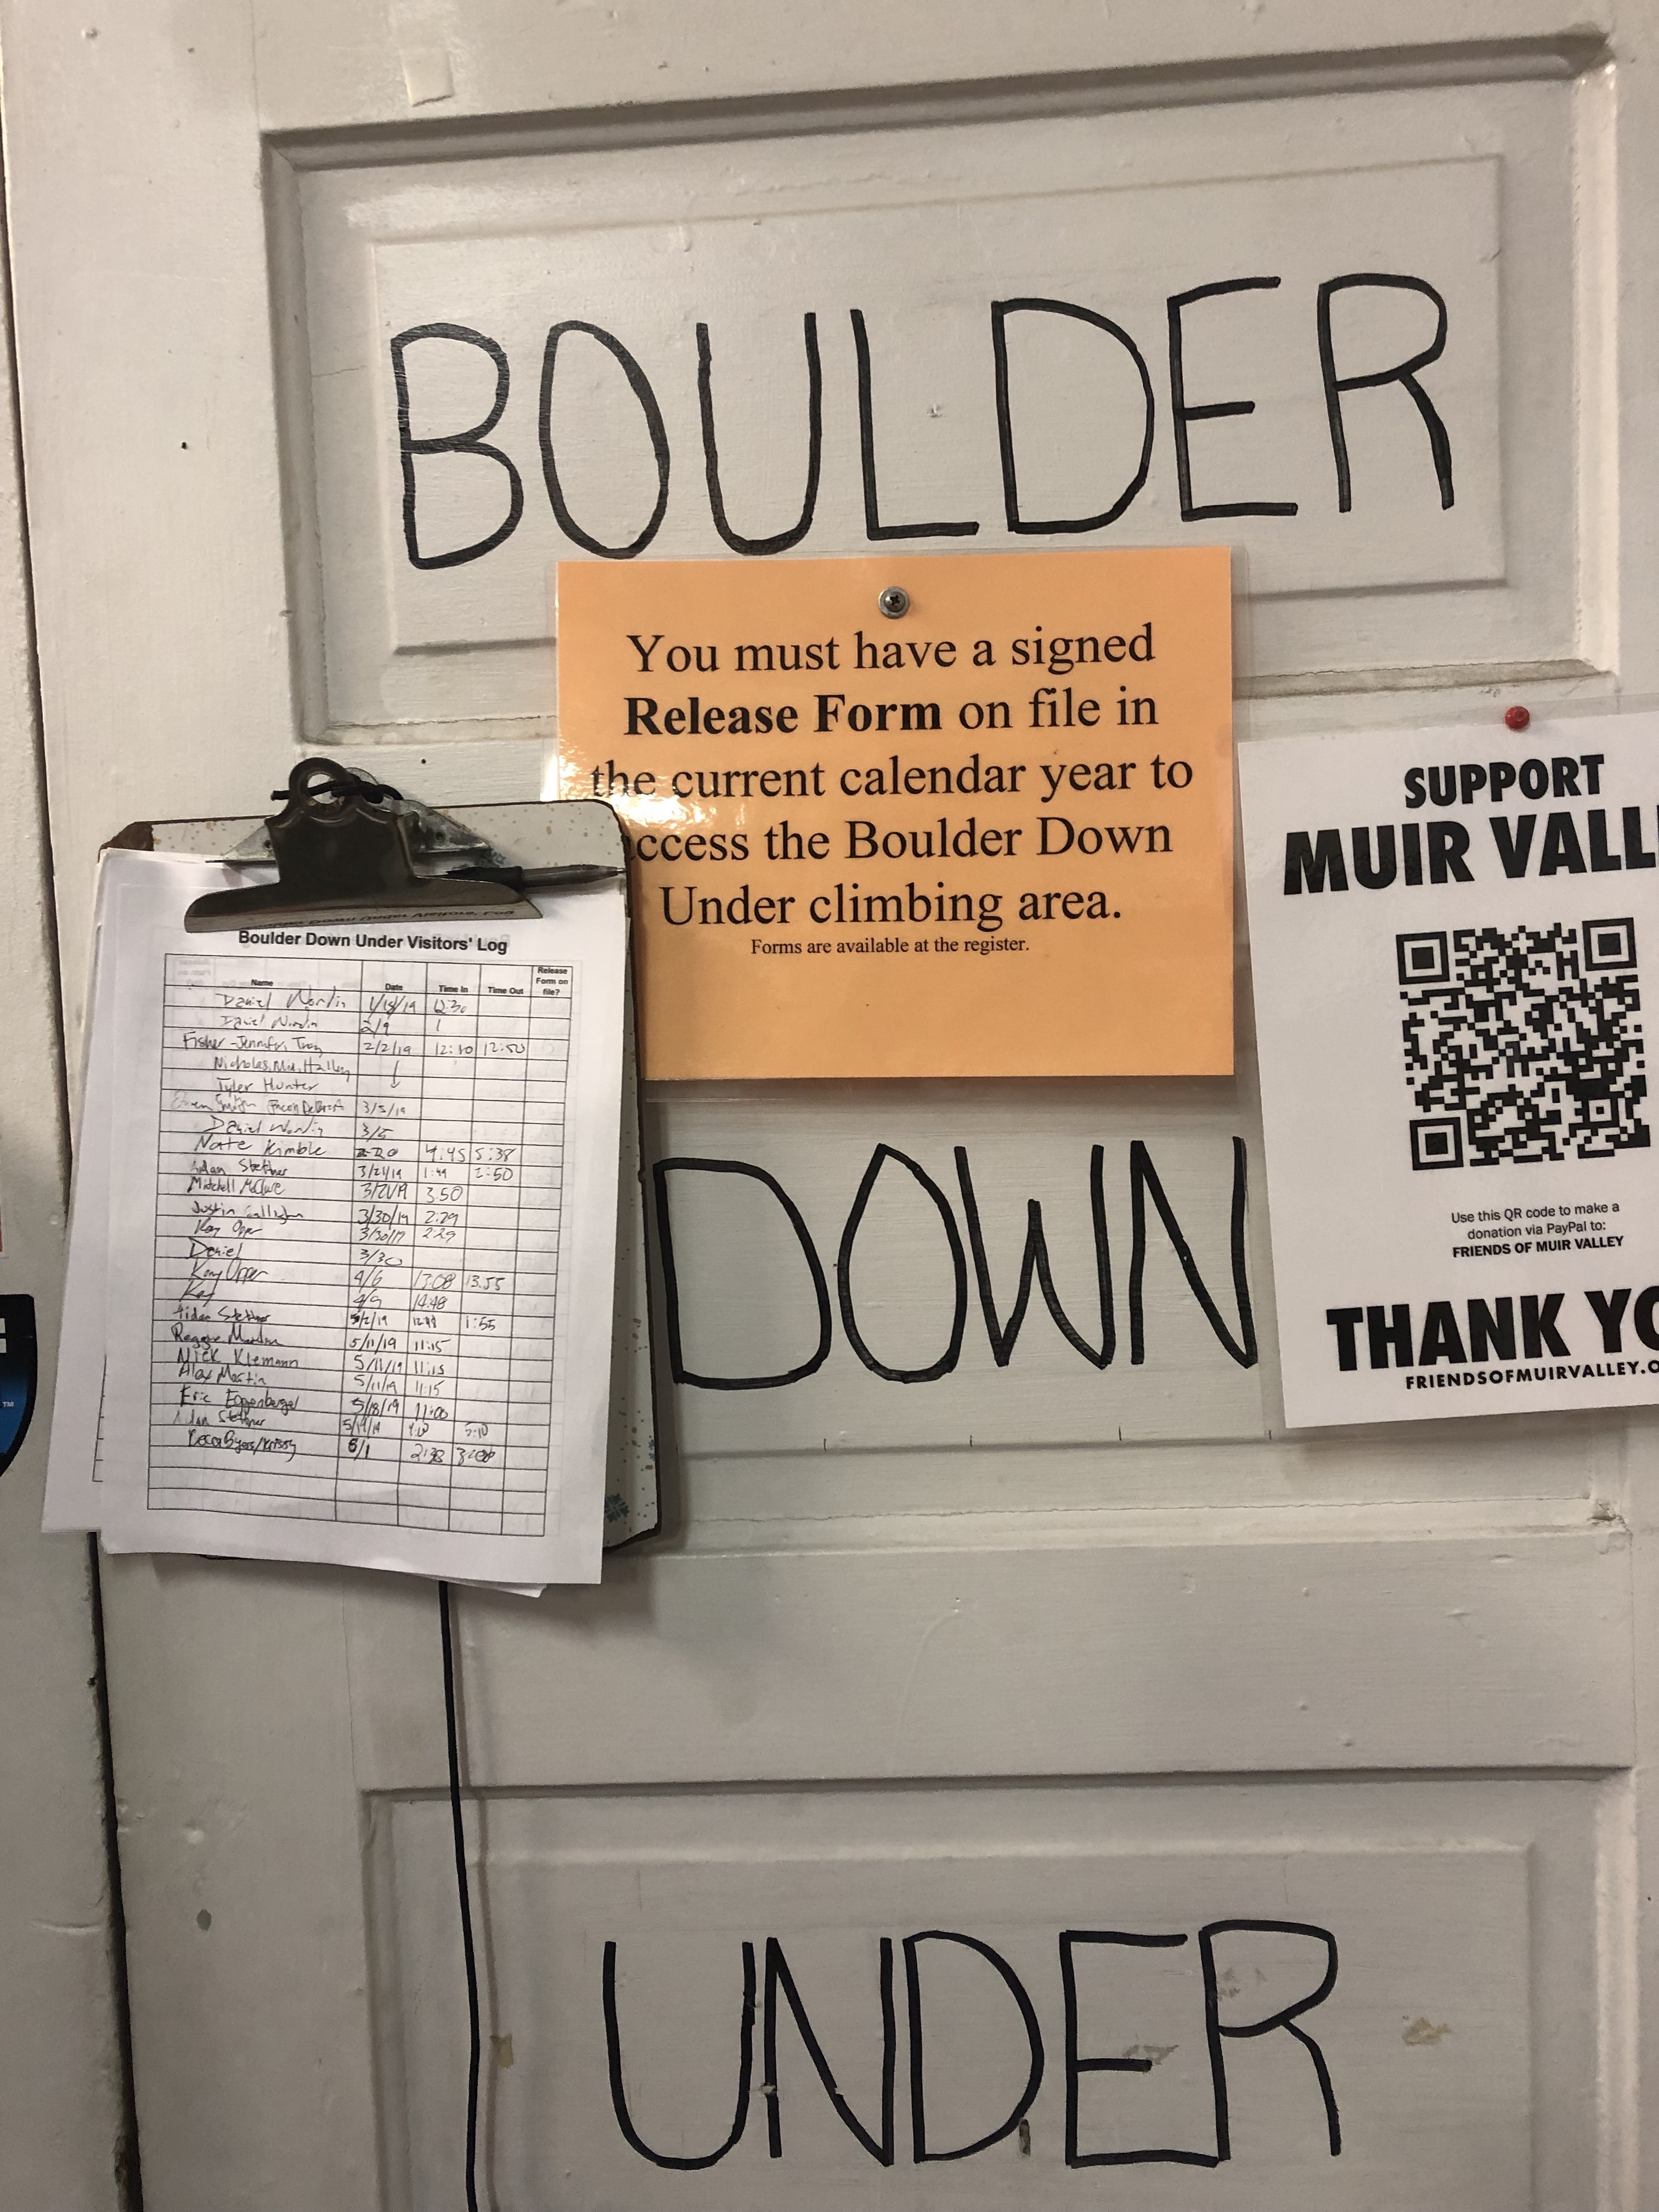 BOULDER
You must have a signed
Release Form on file in
the current calendar year to
ccess the Boulder Down
Under climbing area.
Forms are available at the register.
SUPPORT
MUIR VALL
Use this QR code to make a
donation via PayPal to:
FRIENDS OF MUIR VALLEY
THANK YO
FRIENDSOFMUIRVALLEY.O
Boulder Down Under Visitors' Log
Name Date Time In Time Out Release Form on file?
Daniel 1/15/19 12:30
Daniel 2/9 1
Fisher - Jennifer, Troy 2/2/19 12:10 12:50
Nicholas, Hailey
Tyler Hunter
3/5/19
Daniel 3/5
Nate Kimble 4:45 5:38
Aidan Stettner 3/21/19 1:44 2:50
Mitchell McClure 3/21/19 3:50
Justin 3/30/19 2:29
Kay Opper 3/30/19 2:29
Daniel 3/30
Kay Opper 4/6 13:08 13:55
Kay 4/9 14:48
Aidan Stettner 5/2/19 1:55
5/11/19 11:15
Nick Klemann 5/11/19 11:15
Alex Martin 5/11/19 11:15
Eric Eggenberger 5/18/19 11:00
Aidan Stettner 5/19/19 5:10
6/1 2:38
DOWN
TM
UNDER